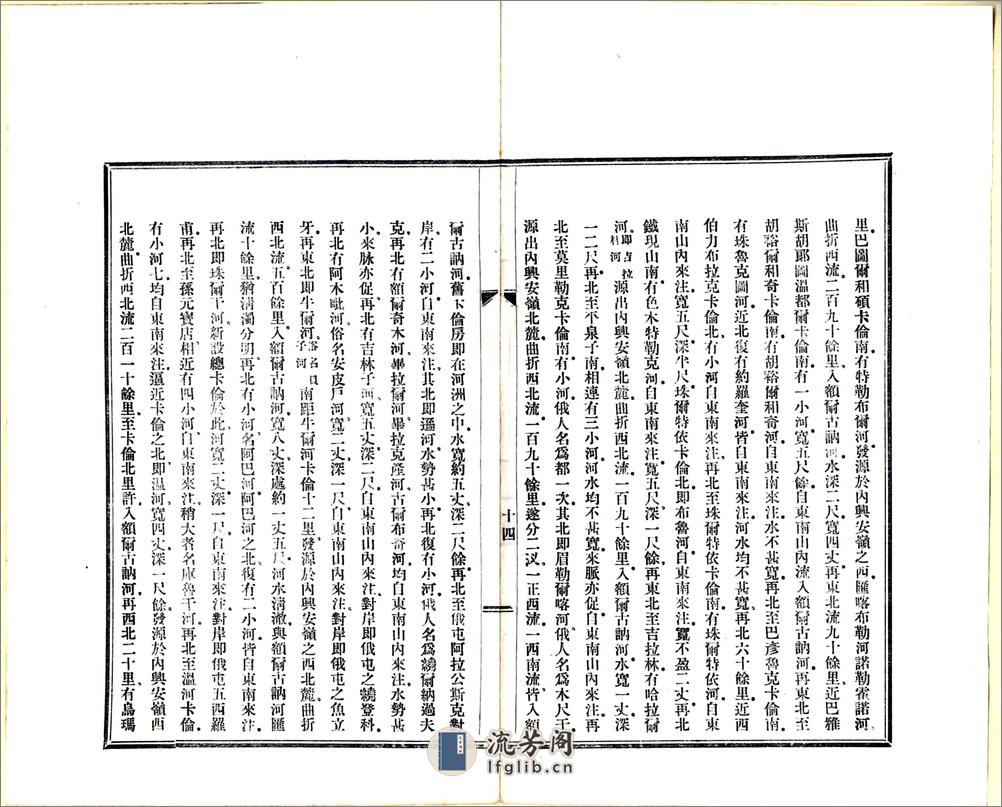 里巴圖爾和碩卡倫南有特勒布爾河發源於內興安嶺之西匯喀布勒河諾勒霍諾河
曲折西流二百九十餘里入額爾古訥河水深二尺寬四丈再東北流九十餘里近巴雅
斯胡郎圖溫都爾卡倫南有一小河寬五尺餘自東南山內流入額爾古訥河再東北至
胡裕爾和奇卡倫南有胡裕爾和奇河自東南來注水不甚寬再北至巴彥魯克卡倫南
有珠魯克圖河近北復有約羅奎河皆自東南來注河水均不甚寬再北六十餘里近西
伯力布拉克卡倫北有小河自東南來注再北至珠爾特依卡倫南有珠爾特依河自東
南山內來注寬五尺深半尺珠爾特依卡倫北即布魯河自東南來注寬不盈二丈再北
鐵現山南有色木特勒克河自東南來注寬五尺深一尺餘再東北至吉拉林有哈拉爾
河即吉拉林河源出內興安嶺北麓曲折西北流一百九十餘里入額爾古訥河水寬一丈深
一二尺再北至平泉子南相連有三小河河水均不甚寬來脈亦促自東南山內來注再
北至莫里勒克卡倫南有小河俄人名爲都一次其北即眉勒爾喀河俄人名爲木尺于
源出內興安嶺北麓曲折西北流一百九十餘里遂分二汊一正西流一西南流皆入額
十四
爾古訥河舊卡倫房即在河洲之中水寬約五丈深二尺餘再北至俄屯阿拉公斯克對
岸有二小河自東南來注其北即遜河水勢甚小再北復有小河俄人名爲繞爾納過夫
克再北有額爾奇木河畢拉爾河畢拉克產河古爾布奇河均自東南山內來注水勢甚
小來脉亦促再北有吉林子河寬五丈深二尺自東南山內來注對岸即俄屯之繞登科
再北有阿木毗河俗名安皮戶河寬二丈深一尺自東南山內來注對岸即俄屯之魚立
牙再東北即牛爾河俗名貝子河南距牛爾河卡倫十二里發源於內興安嶺之西北麓曲折
西北流五百餘里入額爾古訥河寬八丈深處約一丈五尺河水清澈與額爾古訥河匯
流十餘里猶清濁分明再北有小河名阿巴河阿巴河之北復有二小河皆自東南來注
再北即珠爾干河新設總卡倫於此河寬二丈深一尺自東南來注對岸即俄屯五西羅
甫再北至孫元寶店相近有四小河自東南來注稍大者名庫魯干河再北至溫河卡倫
有小河七均自東南來注還近卡倫之北即温河寬四丈深一尺餘發源於內興安嶺西
北麓曲折西北流二百一十餘里至卡倫北里許入額爾古訥河再西北二十里有烏瑪
流芳阁
lfglib.cn